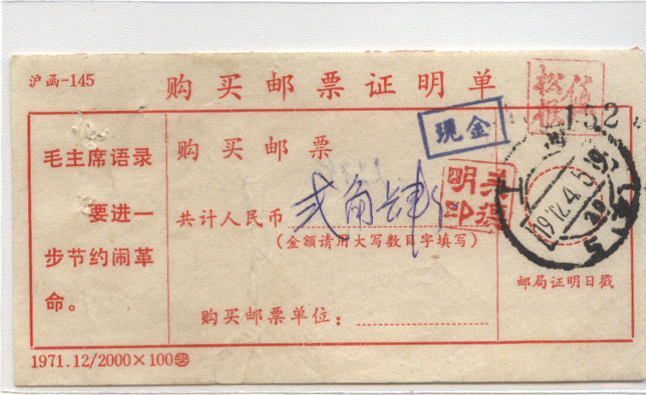 沪函-145
购买邮票证明单
152
现金
毛主席语录
要进一
步节约闹革
命。
购买邮票
共计人民币 贰角肆
(金额请用大写数目字填写)
购买邮票单位:
邮局证明日戳
1971.12/2000×100